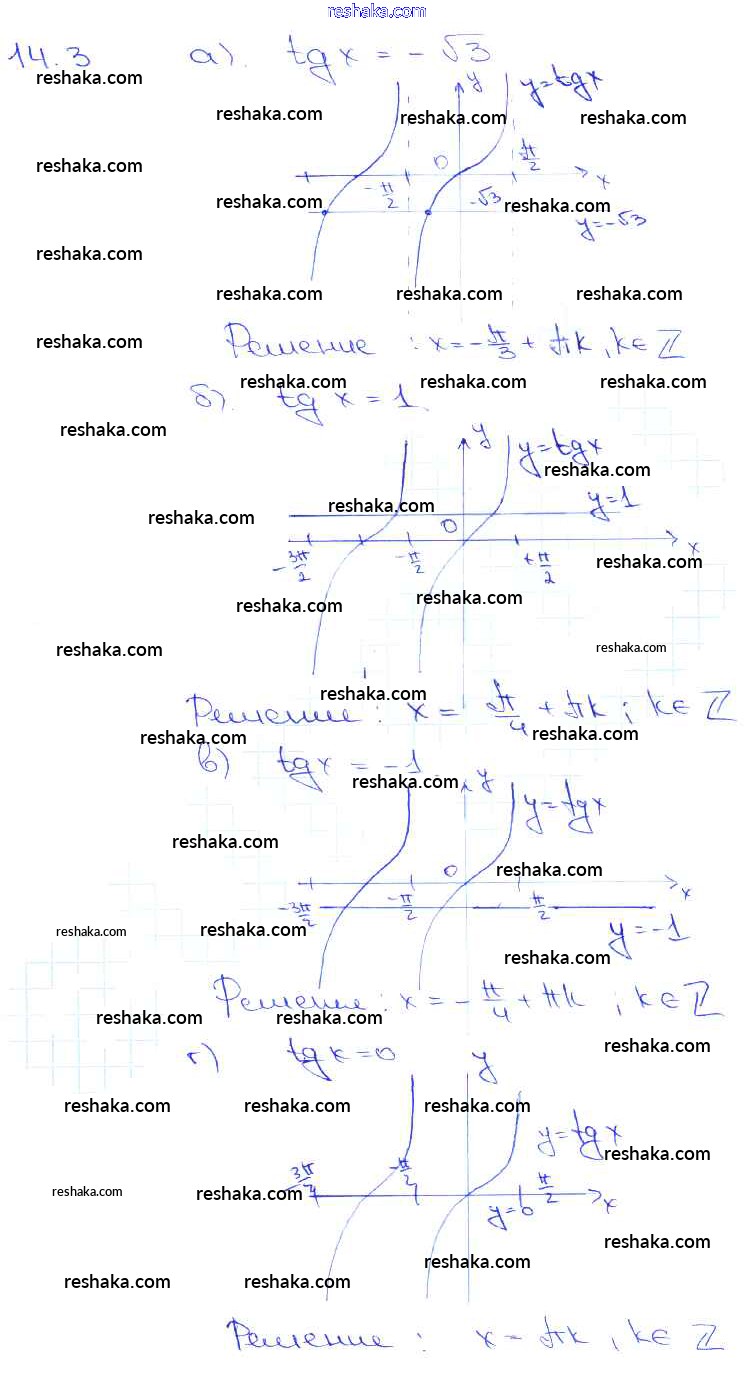 reshaka.com
14.3 а). tg x = - √3
reshaka.com
y y=tg x
reshaka.com reshaka.com reshaka.com
0 π/2
reshaka.com
x
-π/2 -√3
reshaka.com reshaka.com
y=-√3
reshaka.com
reshaka.com reshaka.com reshaka.com
Решение : x=-π/3 + πk, k∈ℤ
reshaka.com
reshaka.com reshaka.com reshaka.com
б). tg x = 1
reshaka.com
y y=tg x
reshaka.com
y=1
reshaka.com reshaka.com
0
x
-3π/2 -π/2 +π/2
reshaka.com
reshaka.com reshaka.com
reshaka.com reshaka.com
reshaka.com
Решение : x = π/4 + πk ; k∈ℤ
reshaka.com reshaka.com
в) tg x = -1
reshaka.com
y y=tg x
reshaka.com
0
reshaka.com
x
-3π/2 -π/2 π/2
reshaka.com reshaka.com
y=-1
reshaka.com
Решение : x = -π/4 + πk ; k∈ℤ
reshaka.com reshaka.com
reshaka.com
г) tg x=0 y
reshaka.com reshaka.com reshaka.com
y=tg x
reshaka.com
-π/2
reshaka.com reshaka.com
π/2
x
y=0
reshaka.com
reshaka.com
reshaka.com reshaka.com
Решение : x = πk, k∈ℤ